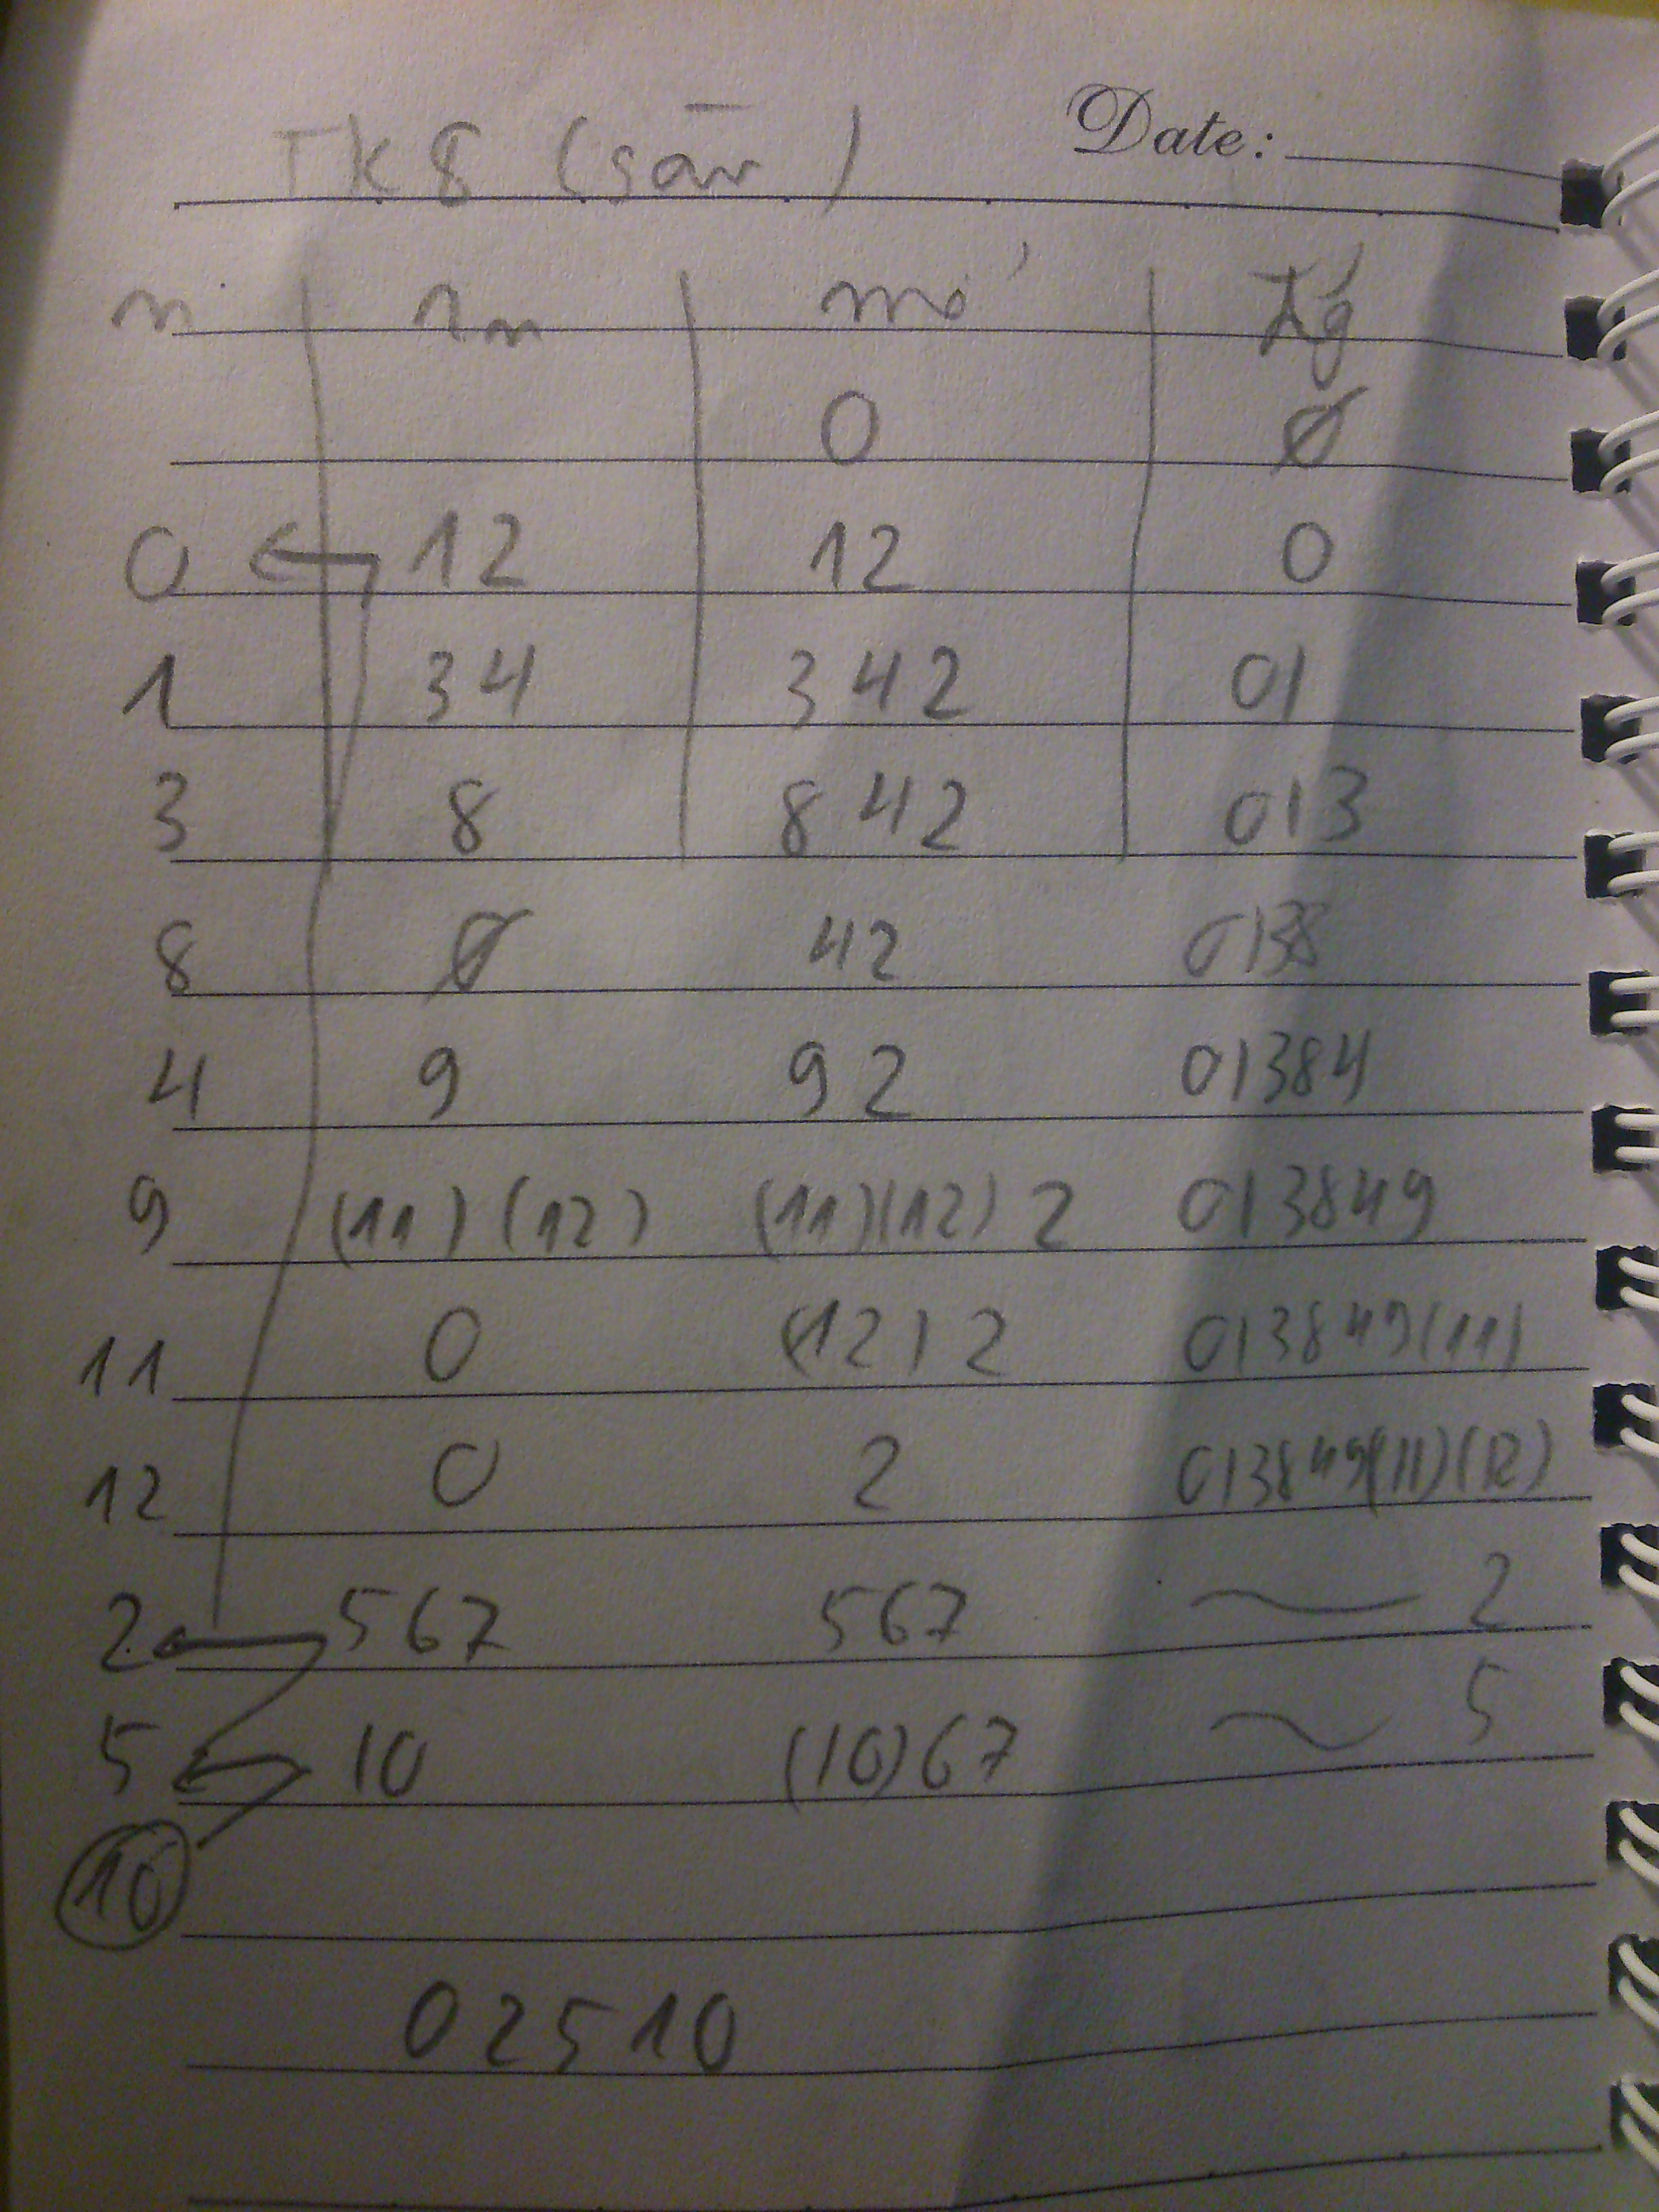 Date:
TK8 (sâu)
n mở
0 Ø
0 12 12 0
1 34 342 01
3 8 842 013
8 Ø 42 0138
4 9 92 01384
9 (11)(12) (11)(12)2 013849
11 0 (12)2 013849(11)
12 0 2 013849(11)(12)
2 567 567 ~ 2
5 10 (10)67 ~ 5
10
02510